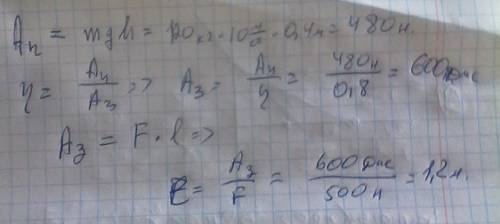 Aп = mgh = 120 кг · 10 н/кг · 0,4м = 480 н.
η = Aп/Aз => Aз = Aп/η = 480н/0,8 = 600 дж
Aз = F · l =>
l = Aз/F = 600 дж/500 н = 1,2 м.